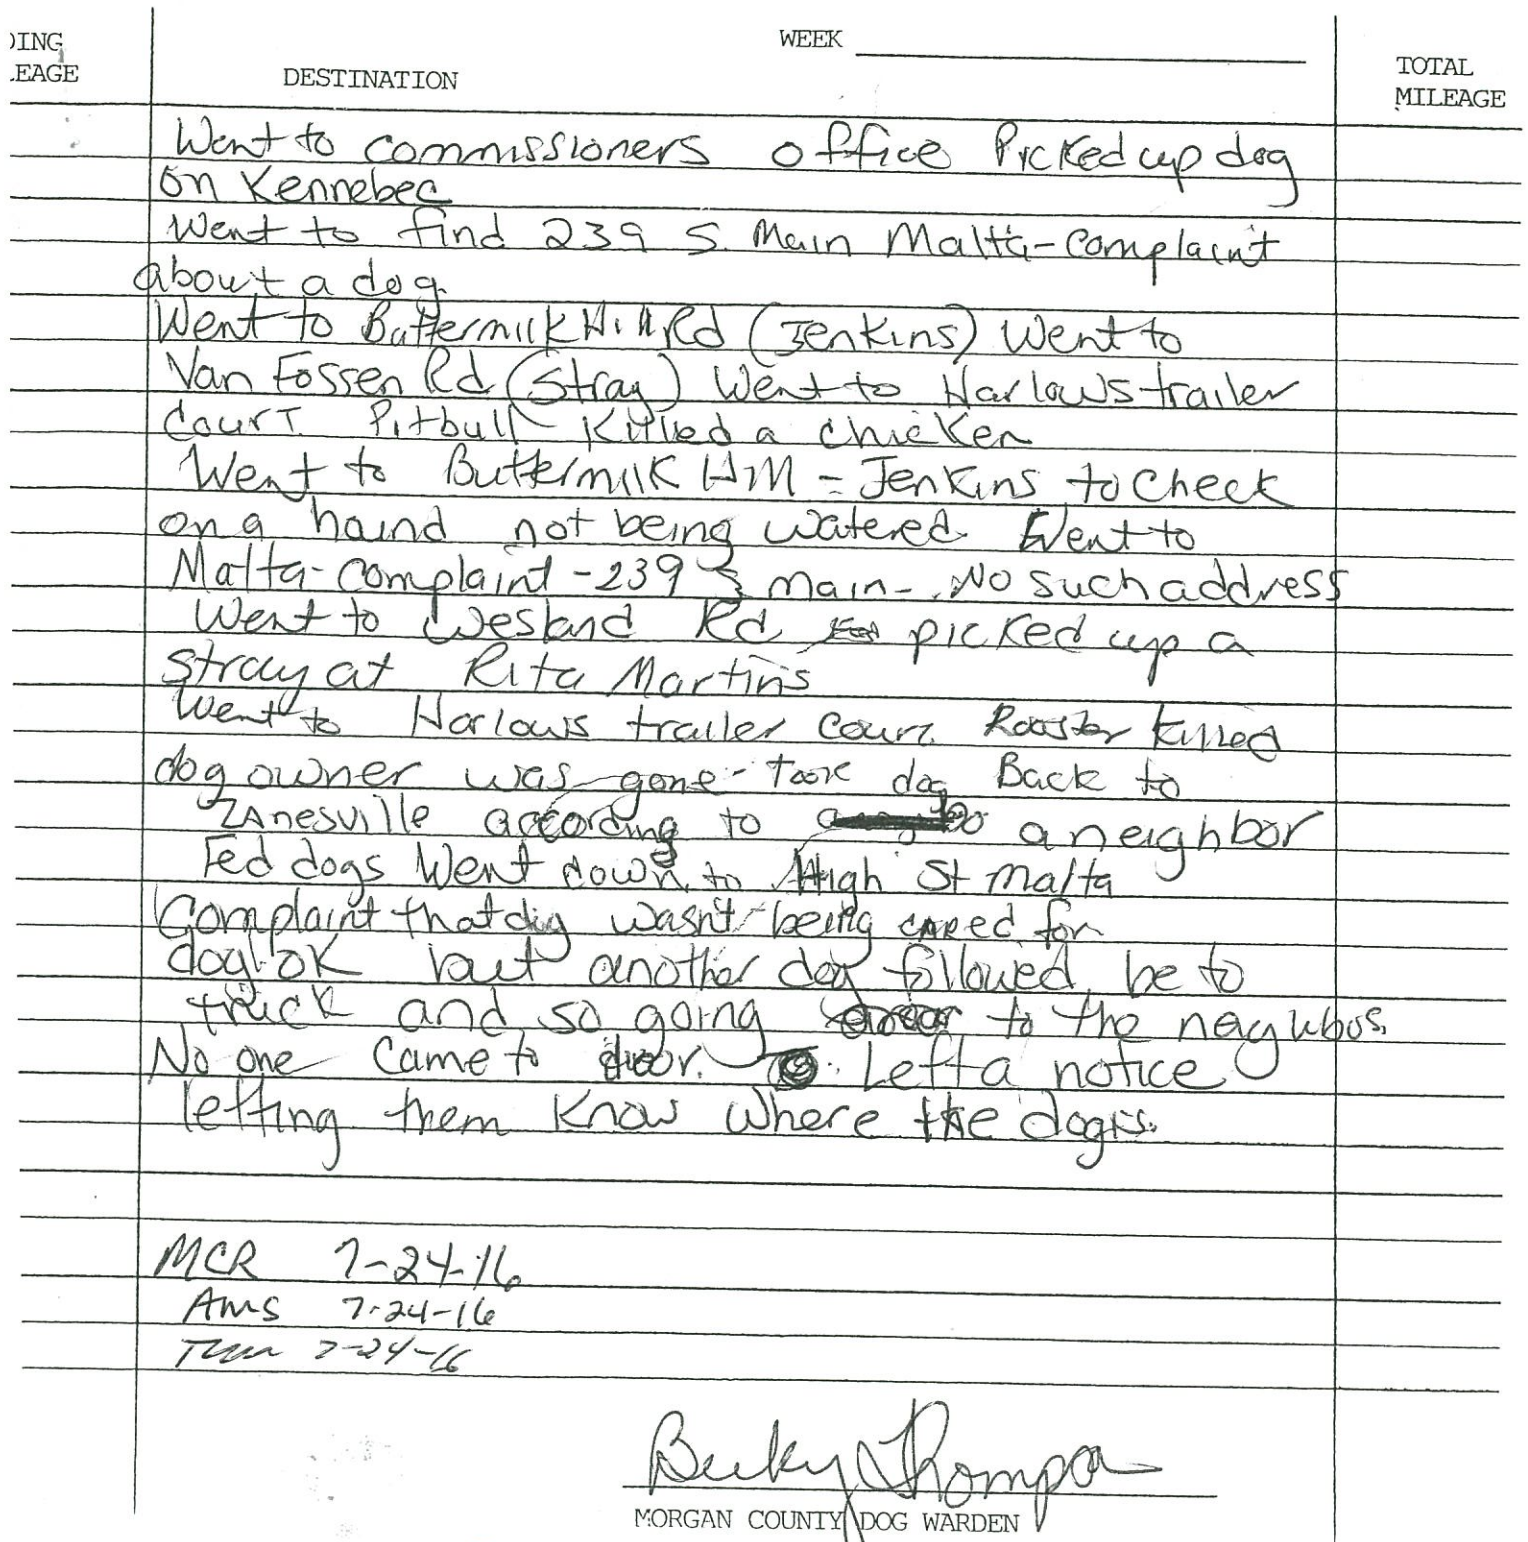 DING
LEAGE
DESTINATION
WEEK
TOTAL
MILEAGE
Went to commissioners office Picked up dog
on Kennebec
Went to find 239 S. Main Malta-Complaint
about a dog.
Went to Buttermilk Hill Rd (Jenkins) Went to
Van Fossen Rd (Stray) Went to Harlows trailer
Court Pitbull Killed a chicken
Went to Buttermilk Hill - Jenkins to Check
on a hound not being watered Went to
Malta-Complaint-239 S main-No such address
Went to Wesland Rd picked up a
stray at Rita Martins
Went to Harlows trailer Court Rooster killed
dog owner was gone-took dog Back to
Zanesville according to a neighbor
Fed dogs Went down to High St Malta
Complaint that dog wasn't being cared for
dog OK but another dog followed be to
truck and so going to the
No one came to door. Left a notice
letting them know where the dog is.
MCR 7-24-16
Ams 7-24-16
7-24-16
Becky Thompson
MORGAN COUNTY DOG WARDEN